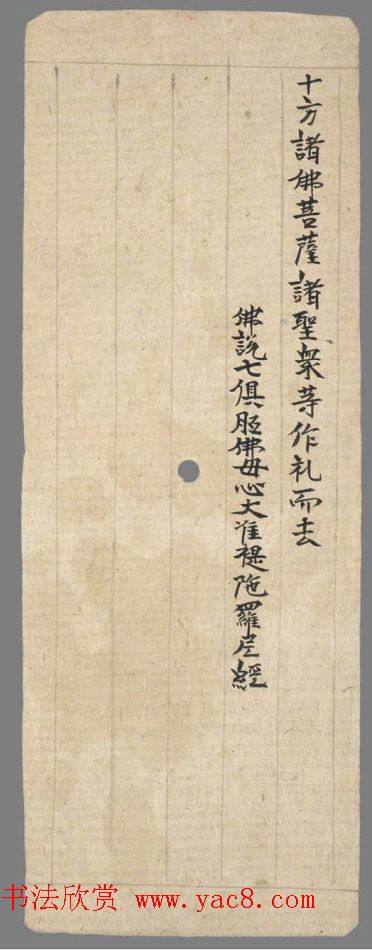 十方諸佛菩薩諸聖衆等作礼而去
佛說七俱胝佛母心大准提陁羅尼經
书法欣赏 www.yac8.com